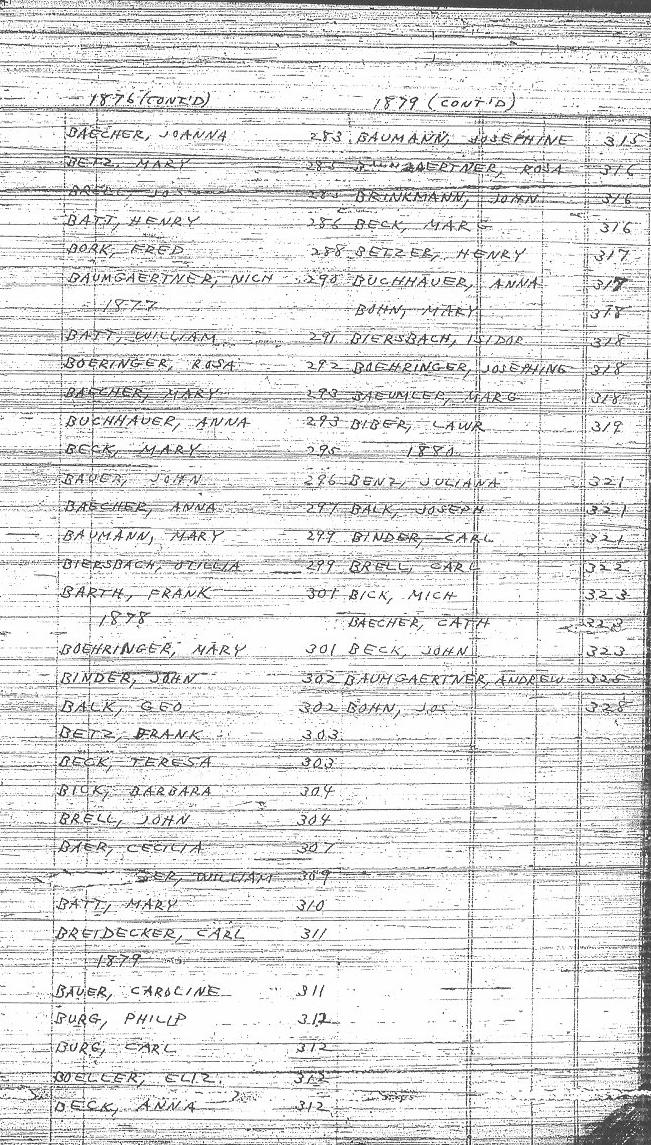 1876 (CONT'D)
BAECHER, JOANNA 283
BETZ, MARY 285
BRELL, JOS 285
BATT, HENRY 286
BORK, FRED 288
BAUMGAERTNER, NICH 290
1877
BATT, WILLIAM 291
BOERINGER, ROSA 292
BAECHER, MARY 293
BUCHHAUER, ANNA 293
BECK, MARY 295
BAUER, JOHN 296
BAECHER, ANNA 297
BAUMANN, MARY 299
BIERSBACH, OTILLIA 299
BARTH, FRANK 301
1878
BOEHRINGER, MARY 301
BINDER, JOHN 302
BALK, GEO 302
BETZ, FRANK 303
BECK, TERESA 303
BICK, BARBARA 304
BRELL, JOHN 304
BAER, CECILIA 307
WILLIAM 309
BATT, MARY 310
BREIDECKER, CARL 311
1879
BAUER, CAROLINE 311
BURG, PHILIP 312
BURG, CARL 312
BOELLER, ELIZ. 312
BECK, ANNA 312
1879 (CONT'D)
BAUMANN, JOSEPHINE 315
ROSA 316
BRINKMANN, JOHN 316
BECK, MARG 316
BETZER, HENRY 317
BUCHHAUER, ANNA 317
BOHN, MARY 318
BIERSBACH, ISIDOR 318
BOEHRINGER, JOSEPHINE 318
BAEUMLER, MARG 318
BIBER, LAWR 319
1880
BENZ, JULIANA 321
BALK, JOSEPH 321
BINDER, CARL 321
BRELL, CARL 322
BICK, MICH 323
BAECHER, CATH 323
BECK, JOHN 323
BAUMGAERTNER, ANDREW 325
BOHN, JOS 328